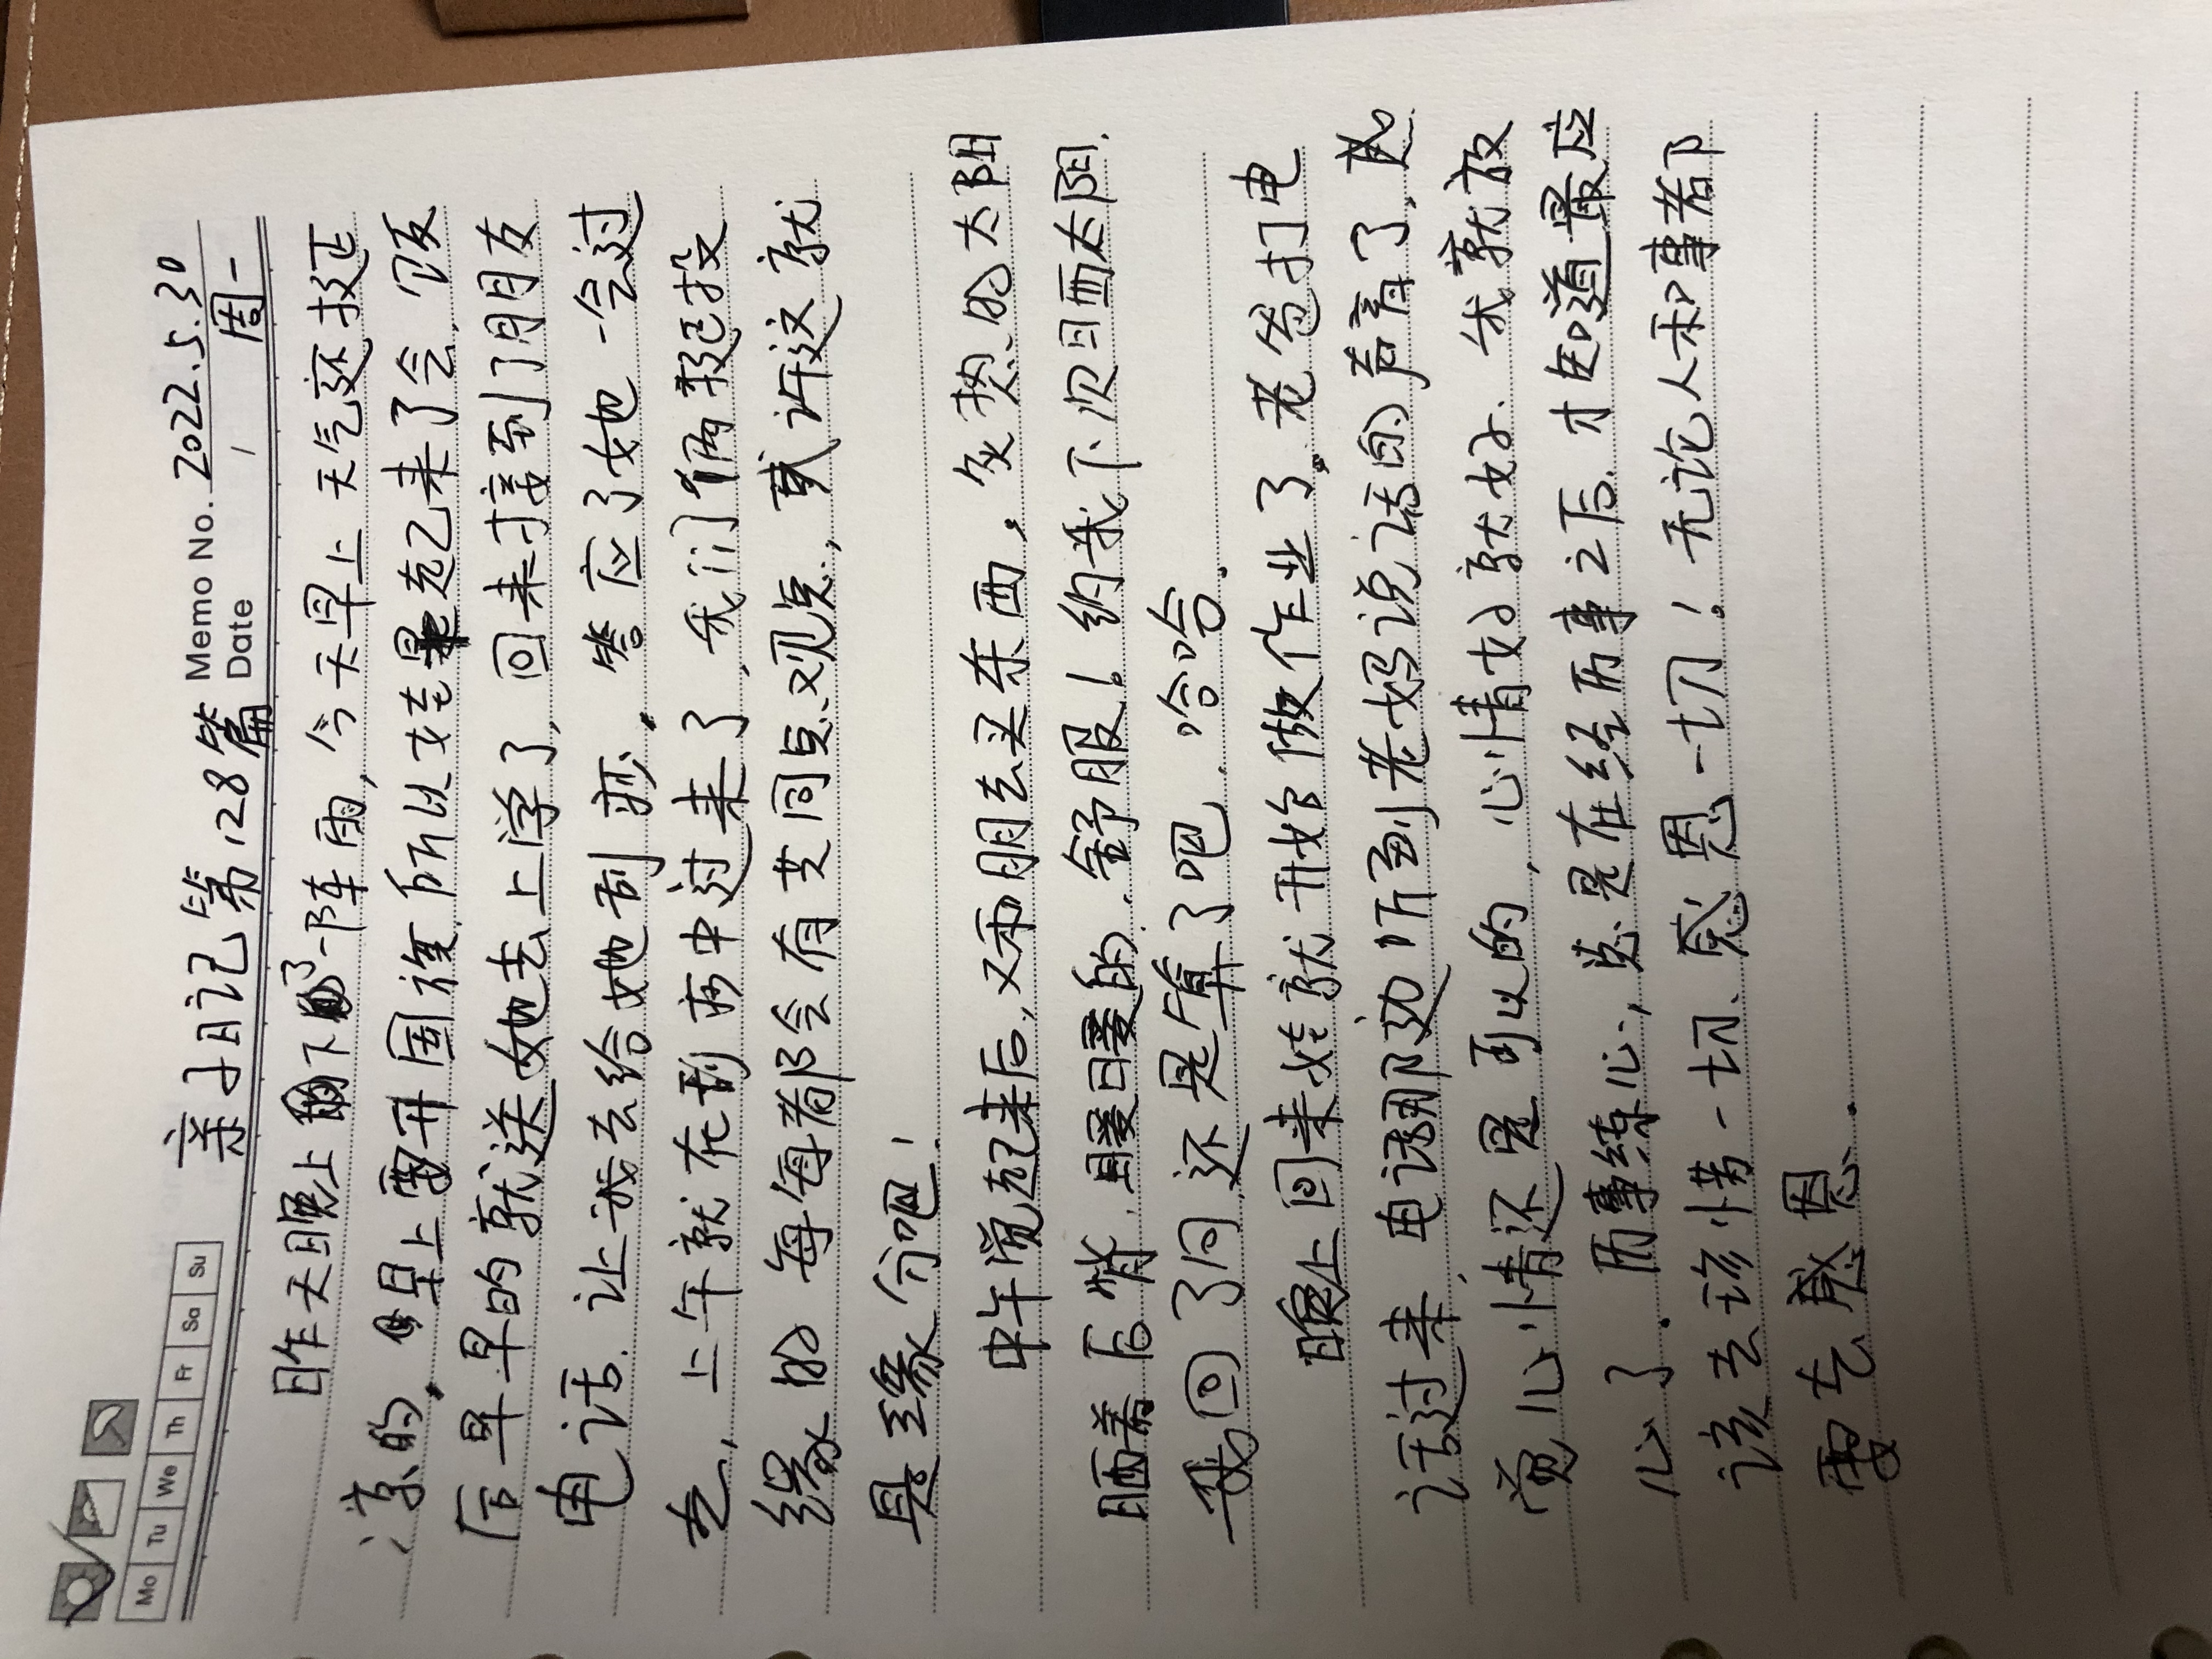 Memo No. 2022.5.30
Mo Tu We Th Fr Sa Su
亲子日记第128篇 Date 周一
昨天晚上下了一阵雨,今天早上天气还挺
凉的,早上要开国旗所以女在起己来了会,饭
后早早的就送她去上学了,回来接到了朋友
电话,让我去给她刮痧,答应了她也一会过
去,上午就在刮痧中过来了,我们俩挺投
缘的每每都会有共同点、观点,或许这就
是缘分吧!
中午觉起来后,又和朋去买东西,炙热的太阳
晒着后背,暖暖的,舒服!约我下次晒太阳.
我回了同还是算了吧,哈哈.
晚上回来姓就开始做作业了,老爸打电
话过来,电话那边听到老妈说话的声音了,感
觉心情还是可以的,心情好就好,我就放
心了.历事练心,总是在经历事之后,才知道最应
该去珍惜一切、感恩一切!无论人和事者都
要去感恩.